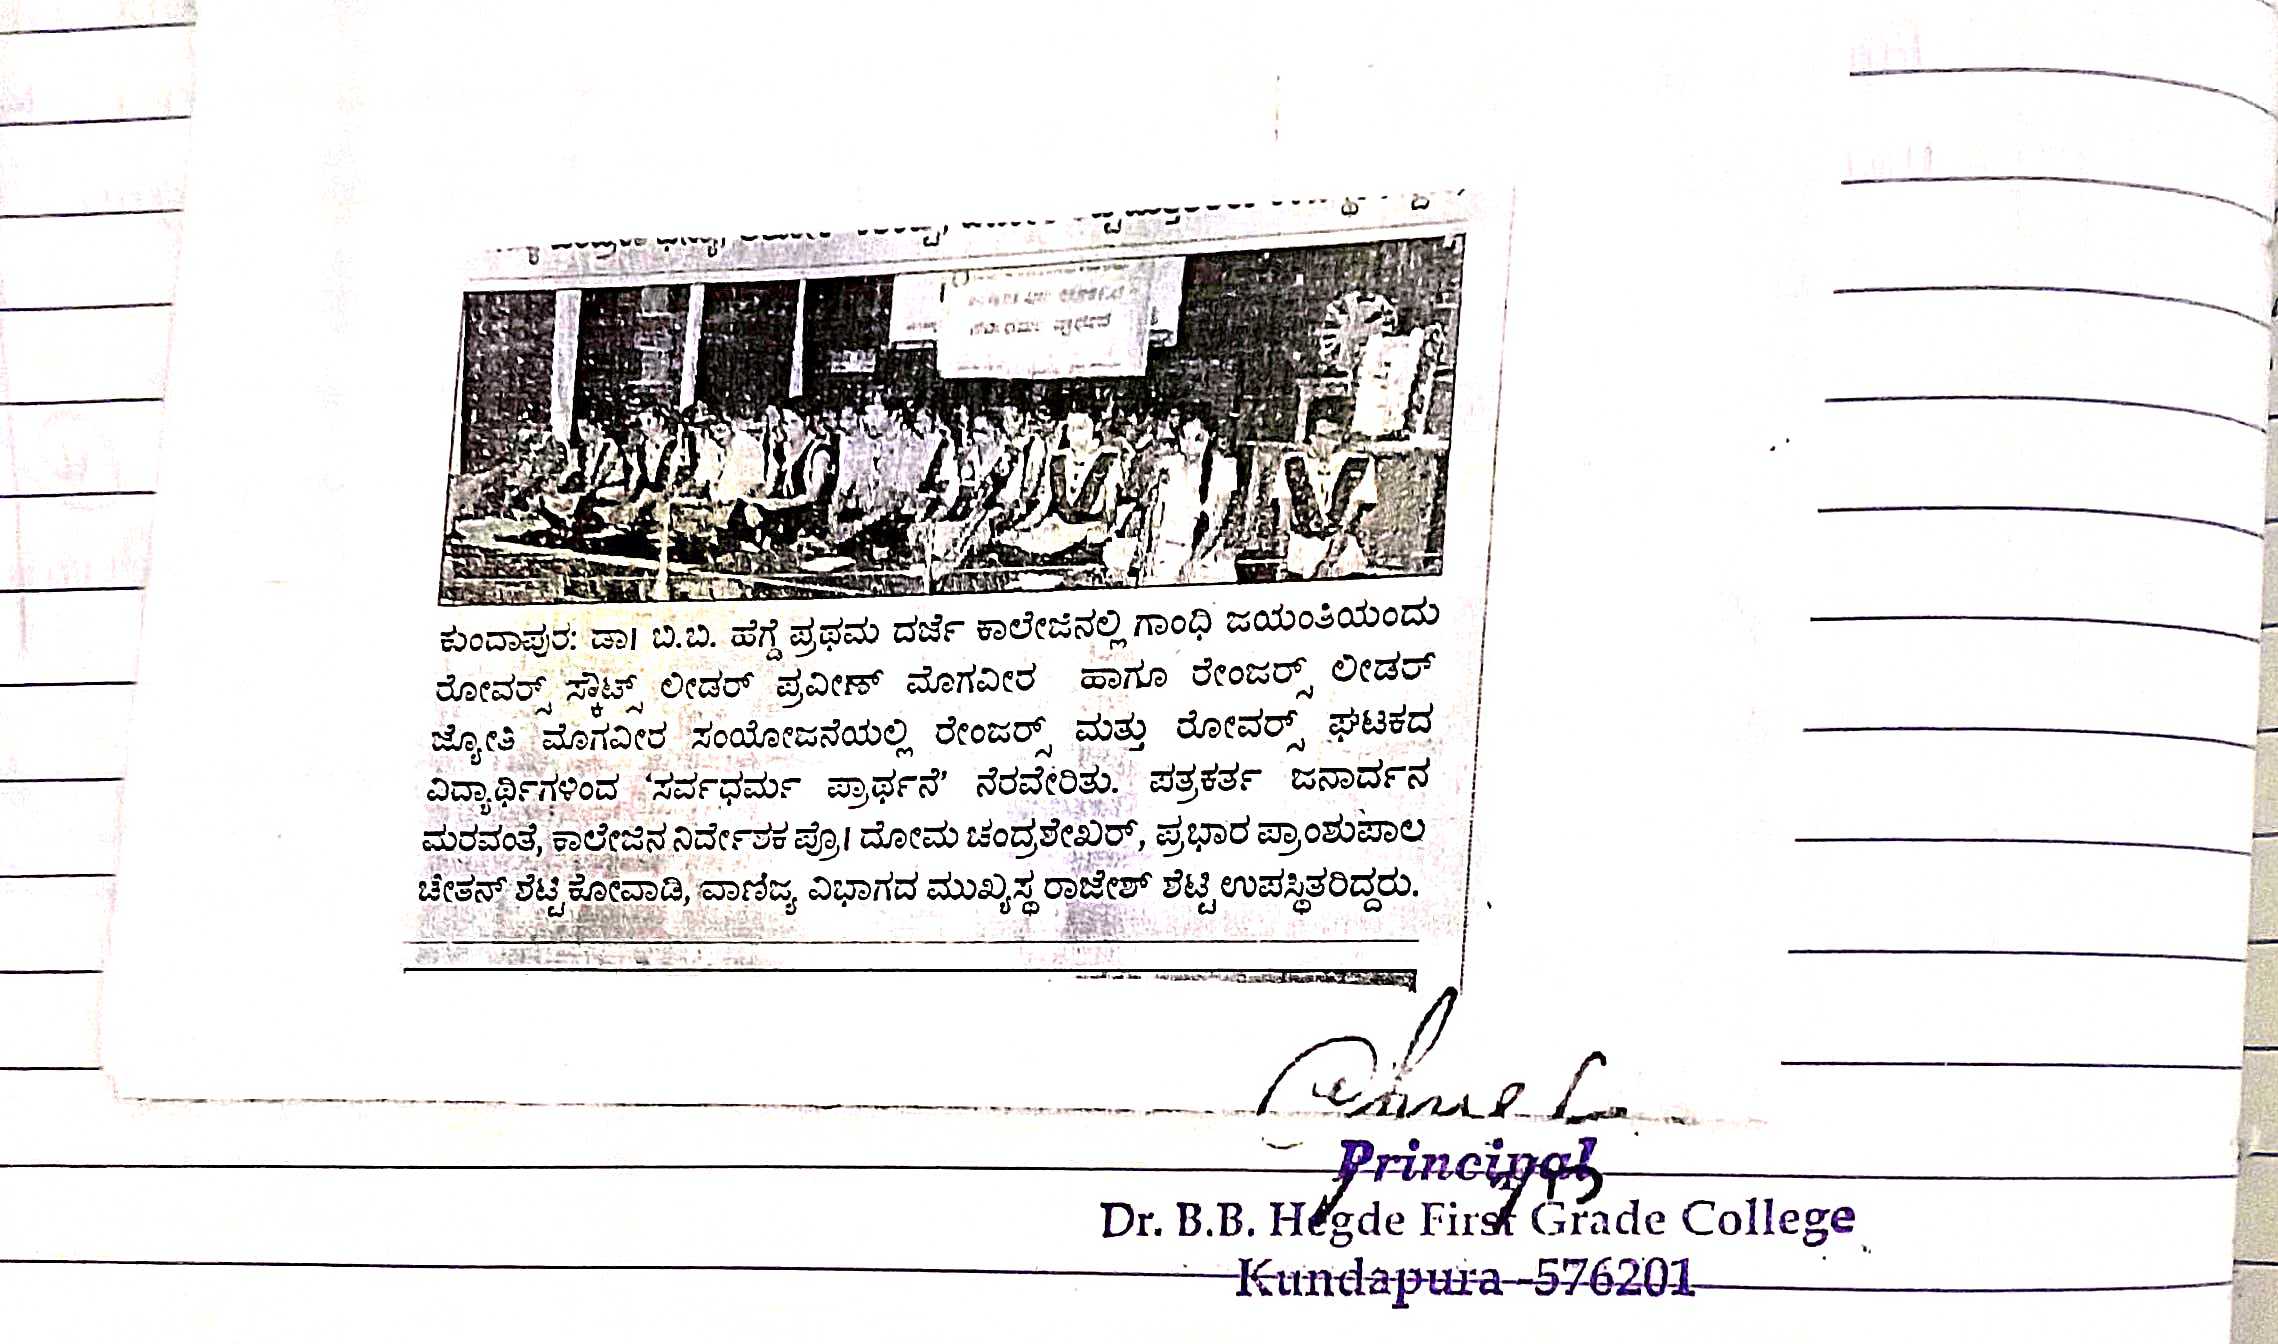 ಕುಂದಾಪುರ: ಡಾ। ಬಿ.ಬಿ. ಹೆಗ್ಡೆ ಪ್ರಥಮ ದರ್ಜೆ ಕಾಲೇಜಿನಲ್ಲಿ ಗಾಂಧಿ ಜಯಂತಿಯಂದು
ರೋವರ್ಸ್ ಸ್ಕೌಟ್ಸ್ ಲೀಡರ್ ಪ್ರವೀಣ್ ಮೊಗವೀರ ಹಾಗೂ ರೇಂಜರ್ಸ್ ಲೀಡರ್
ಜ್ಯೋತಿ ಮೊಗವೀರ ಸಂಯೋಜನೆಯಲ್ಲಿ ರೇಂಜರ್ಸ್ ಮತ್ತು ರೋವರ್ಸ್ ಘಟಕದ
ವಿದ್ಯಾರ್ಥಿಗಳಿಂದ ‘ಸರ್ವಧರ್ಮ ಪ್ರಾರ್ಥನೆ’ ನೆರವೇರಿತು. ಪತ್ರಕರ್ತ ಜನಾರ್ದನ
ಮರವಂತೆ, ಕಾಲೇಜಿನ ನಿರ್ದೇಶಕ ಪ್ರೊ। ದೋಮ ಚಂದ್ರಶೇಖರ್, ಪ್ರಭಾರ ಪ್ರಾಂಶುಪಾಲ
ಚೇತನ್ ಶೆಟ್ಟಿ ಕೋವಾಡಿ, ವಾಣಿಜ್ಯ ವಿಭಾಗದ ಮುಖ್ಯಸ್ಥ ರಾಜೇಶ್ ಶೆಟ್ಟಿ ಉಪಸ್ಥಿತರಿದ್ದರು.
Principal
Dr. B.B. Hegde First Grade College
Kundapura -576201